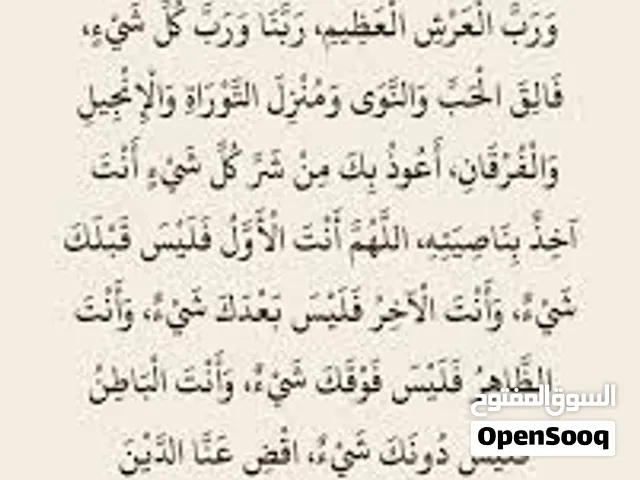 وَرَبَّ الْعَرْشِ الْعَظِيمِ، رَبَّنَا وَرَبَّ كُلِّ شَيْءٍ،
فَالِقَ الْحَبِّ وَالنَّوَى وَمُنْزِلَ التَّوْرَاةِ وَالْإِنْجِيلِ
وَالْفُرْقَانِ، أَعُوذُ بِكَ مِنْ شَرِّ كُلِّ شَيْءٍ أَنْتَ
آخِذٌ بِنَاصِيَتِهِ، اللَّهُمَّ أَنْتَ الْأَوَّلُ فَلَيْسَ قَبْلَكَ
شَيْءٌ، وَأَنْتَ الْآخِرُ فَلَيْسَ بَعْدَكَ شَيْءٌ، وَأَنْتَ
الظَّاهِرُ فَلَيْسَ فَوْقَكَ شَيْءٌ، وَأَنْتَ الْبَاطِنُ
فَلَيْسَ دُونَكَ شَيْءٌ، اقْضِ عَنَّا الدَّيْنَ
السوق المفتوح
OpenSooq